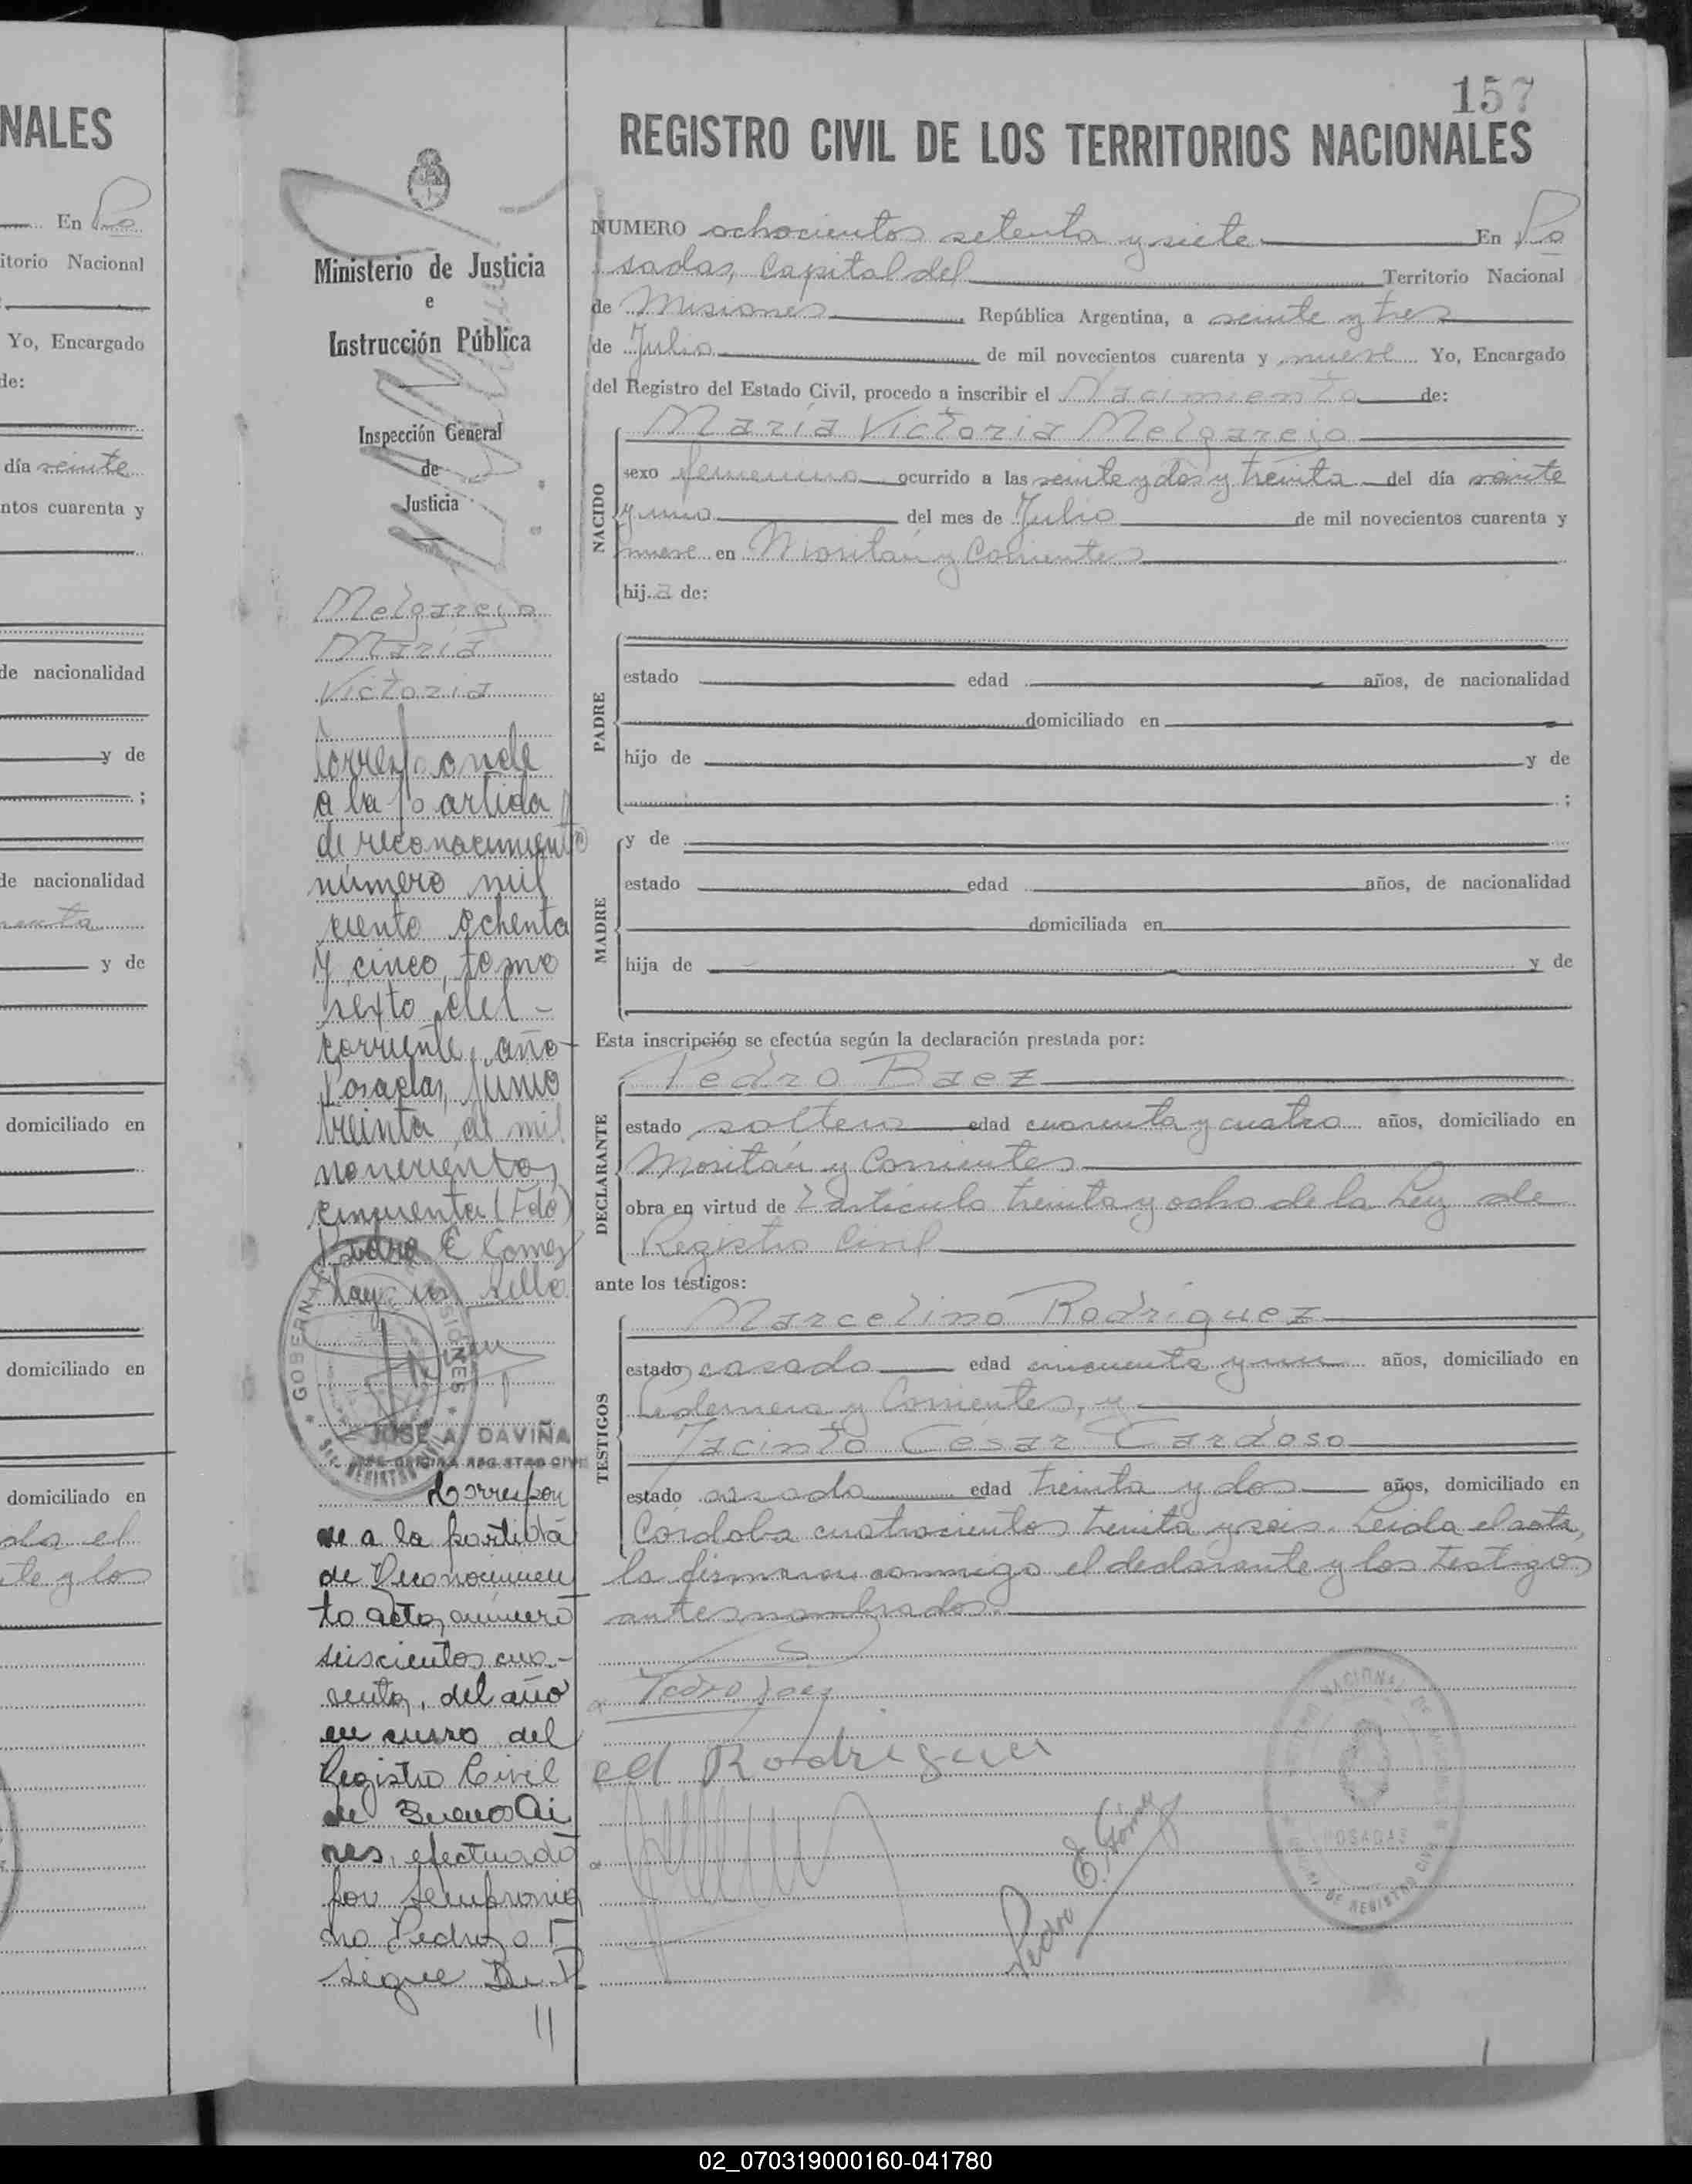 NALES
En Po
itorio Nacional
Yo, Encargado
de:
día veinte
ntos cuarenta y
de nacionalidad
y de
;
de nacionalidad
y de
domiciliado en
domiciliado en
domiciliado en
da el
te y los
157
REGISTRO CIVIL DE LOS TERRITORIOS NACIONALES
Ministerio de Justicia
e
Instrucción Pública
Inspección General
de
Justicia
Melgarejo
María
Victoria
Corresponde
a la partida
de reconocimiento
número mil
ciento ochenta
y cinco, tomo
sexto del -
corriente año -
Posadas, Junio
treinta de mil
novecientos
cincuenta (Fdo)
Pedro E Gomez
Hay un sello
GOBERN MISIONES
JOSE A. DAVIÑA
JEFE OFICINA REG. STRO CIVI
Correspon
de a la partida
de Reconocimien
to acta, número
seiscientos cua-
renta, del año
en curso del
Registro Civil
de Buenos Ai
res, efectuado
por Sempronia
no Pedrozo
sigue
NUMERO ochocientos setenta y siete En Po
sadas, Capital del Territorio Nacional
de Misiones República Argentina, a veinte y tres
de Julio de mil novecientos cuarenta y nueve Yo, Encargado
del Registro del Estado Civil, procedo a inscribir el Nacimiento de:
María Victoria Melgarejo
NACIDO
sexo femenino ocurrido a las veinte y dos y treinta del día veinte
y uno del mes de Julio de mil novecientos cuarenta y
nueve en Moritán y Corrientes
hij a de:
PADRE
estado edad años, de nacionalidad
domiciliado en
hijo de y de
;
MADRE
y de
estado edad años, de nacionalidad
domiciliada en
hija de y de
Esta inscripción se efectúa según la declaración prestada por:
DECLARANTE
Pedro Baez
estado soltero edad cuarenta y cuatro años, domiciliado en
Moritán y Corrientes
obra en virtud de l artículo treinta y ocho de la Ley de
Registro Civil
ante los testigos:
TESTIGOS
Marcelino Rodríguez
estado casado edad cincuenta y un años, domiciliado en
Pedernera y Corrientes, y
Jacinto César Cardoso
estado casado edad treinta y dos años, domiciliado en
Córdoba cuatrocientos treinta y seis. Leida el acta,
la firmaron conmigo el declarante y los testigos
antes nombrados.
Pedro Baez
Rodriguez
Pedro E. Gómez
POSADAS
DE REGISTRO CIVIL
02_070319000160-041780